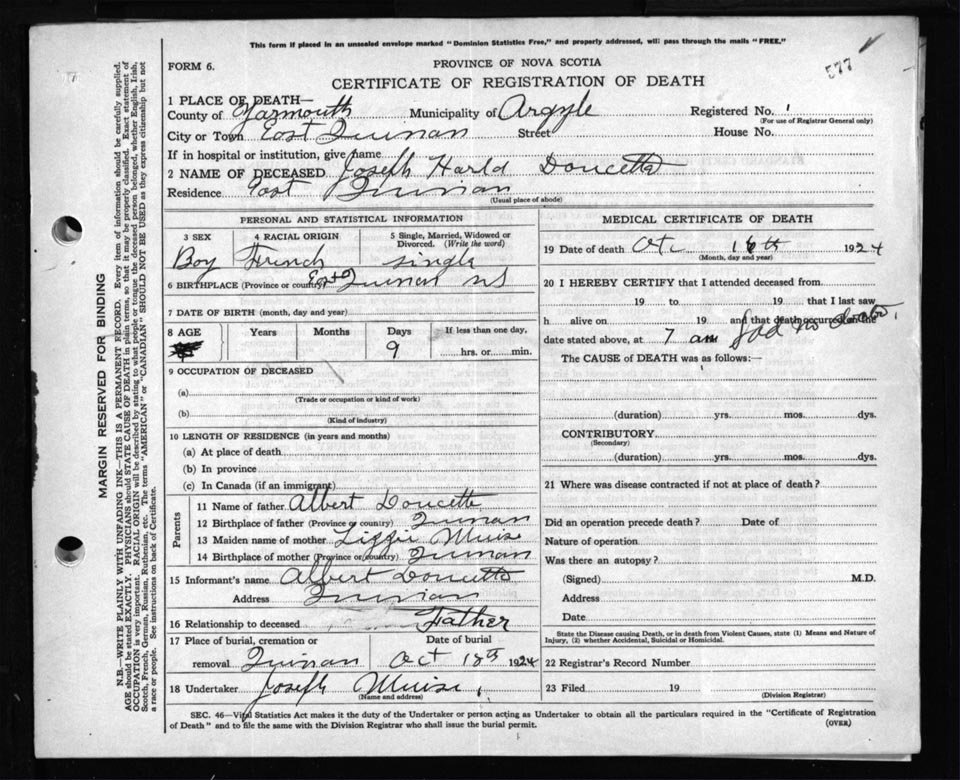 This form if placed in an unsealed envelope marked "Dominion Statistics Free," and properly addressed, will pass through the mails "FREE."
577
FORM 6.
PROVINCE OF NOVA SCOTIA
CERTIFICATE OF REGISTRATION OF DEATH
1 PLACE OF DEATH—
County of Yarmouth Municipality of Argyle Registered No.
(For use of Registrar General only)
City or Town East Quinan Street House No.
If in hospital or institution, give name
2 NAME OF DECEASED Joseph Harld Doucette
Residence East Quinan
(Usual place of abode)
PERSONAL AND STATISTICAL INFORMATION
3 SEX
Boy
4 RACIAL ORIGIN
French
5 Single, Married, Widowed or Divorced. (Write the word)
single
6 BIRTHPLACE (Province or country) East Quinan NS
7 DATE OF BIRTH (month, day and year)
8 AGE Years Months Days If less than one day,
9 hrs. or min.
9 OCCUPATION OF DECEASED
(a)
(Trade or occupation or kind of work)
(b)
(Kind of industry)
10 LENGTH OF RESIDENCE (in years and months)
(a) At place of death
(b) In province
(c) In Canada (if an immigrant)
Parents
11 Name of father Albert Doucette
12 Birthplace of father (Province or country) Quinan
13 Maiden name of mother Lizzie Muise
14 Birthplace of mother (Province or country) Quinan
15 Informant's name Albert Doucette
Address Quinan
16 Relationship to deceased Father
17 Place of burial, cremation or Date of burial
removal Quinan Oct 18th 1924
18 Undertaker Joseph Muise
(Name and address)
MEDICAL CERTIFICATE OF DEATH
19 Date of death Otc 16th 1924
(Month, day and year)
20 I HEREBY CERTIFY that I attended deceased from
19 to 19 that I last saw
h alive on 19 and that death occurred on the
date stated above, at 7 am had no doctor
The CAUSE of DEATH was as follows:—
(duration) yrs. mos. dys.
CONTRIBUTORY
(Secondary)
(duration) yrs. mos. dys.
21 Where was disease contracted if not at place of death?
Did an operation precede death? Date of
Nature of operation
Was there an autopsy?
(Signed) M.D.
Address
Date
State the Disease causing Death, or in death from Violent Causes, state (1) Means and Nature of
Injury, (2) whether Accidental, Suicidal or Homicidal.
22 Registrar's Record Number
23 Filed 19
(Division Registrar)
SEC. 46—Vital Statistics Act makes it the duty of the Undertaker or person acting as Undertaker to obtain all the particulars required in the "Certificate of Registration
of Death" and to file the same with the Division Registrar who shall issue the burial permit.
(OVER)
MARGIN RESERVED FOR BINDING
N.B.—WRITE PLAINLY WITH UNFADING INK—THIS IS A PERMANENT RECORD. Every item of information should be carefully supplied.
AGE should be stated EXACTLY. PHYSICIANS should STATE CAUSE OF DEATH in plain terms, so that it may be properly classified. Exact statement of
OCCUPATION is very important. RACIAL ORIGIN will be described by stating to what people or tongue the deceased person belonged, whether English, Irish,
Scotch, French, German, Russian, Ruthenian, etc. The terms "AMERICAN" or "CANADIAN" SHOULD NOT BE USED as they express citizenship but not
a race or people. See instructions on back of Certificate.